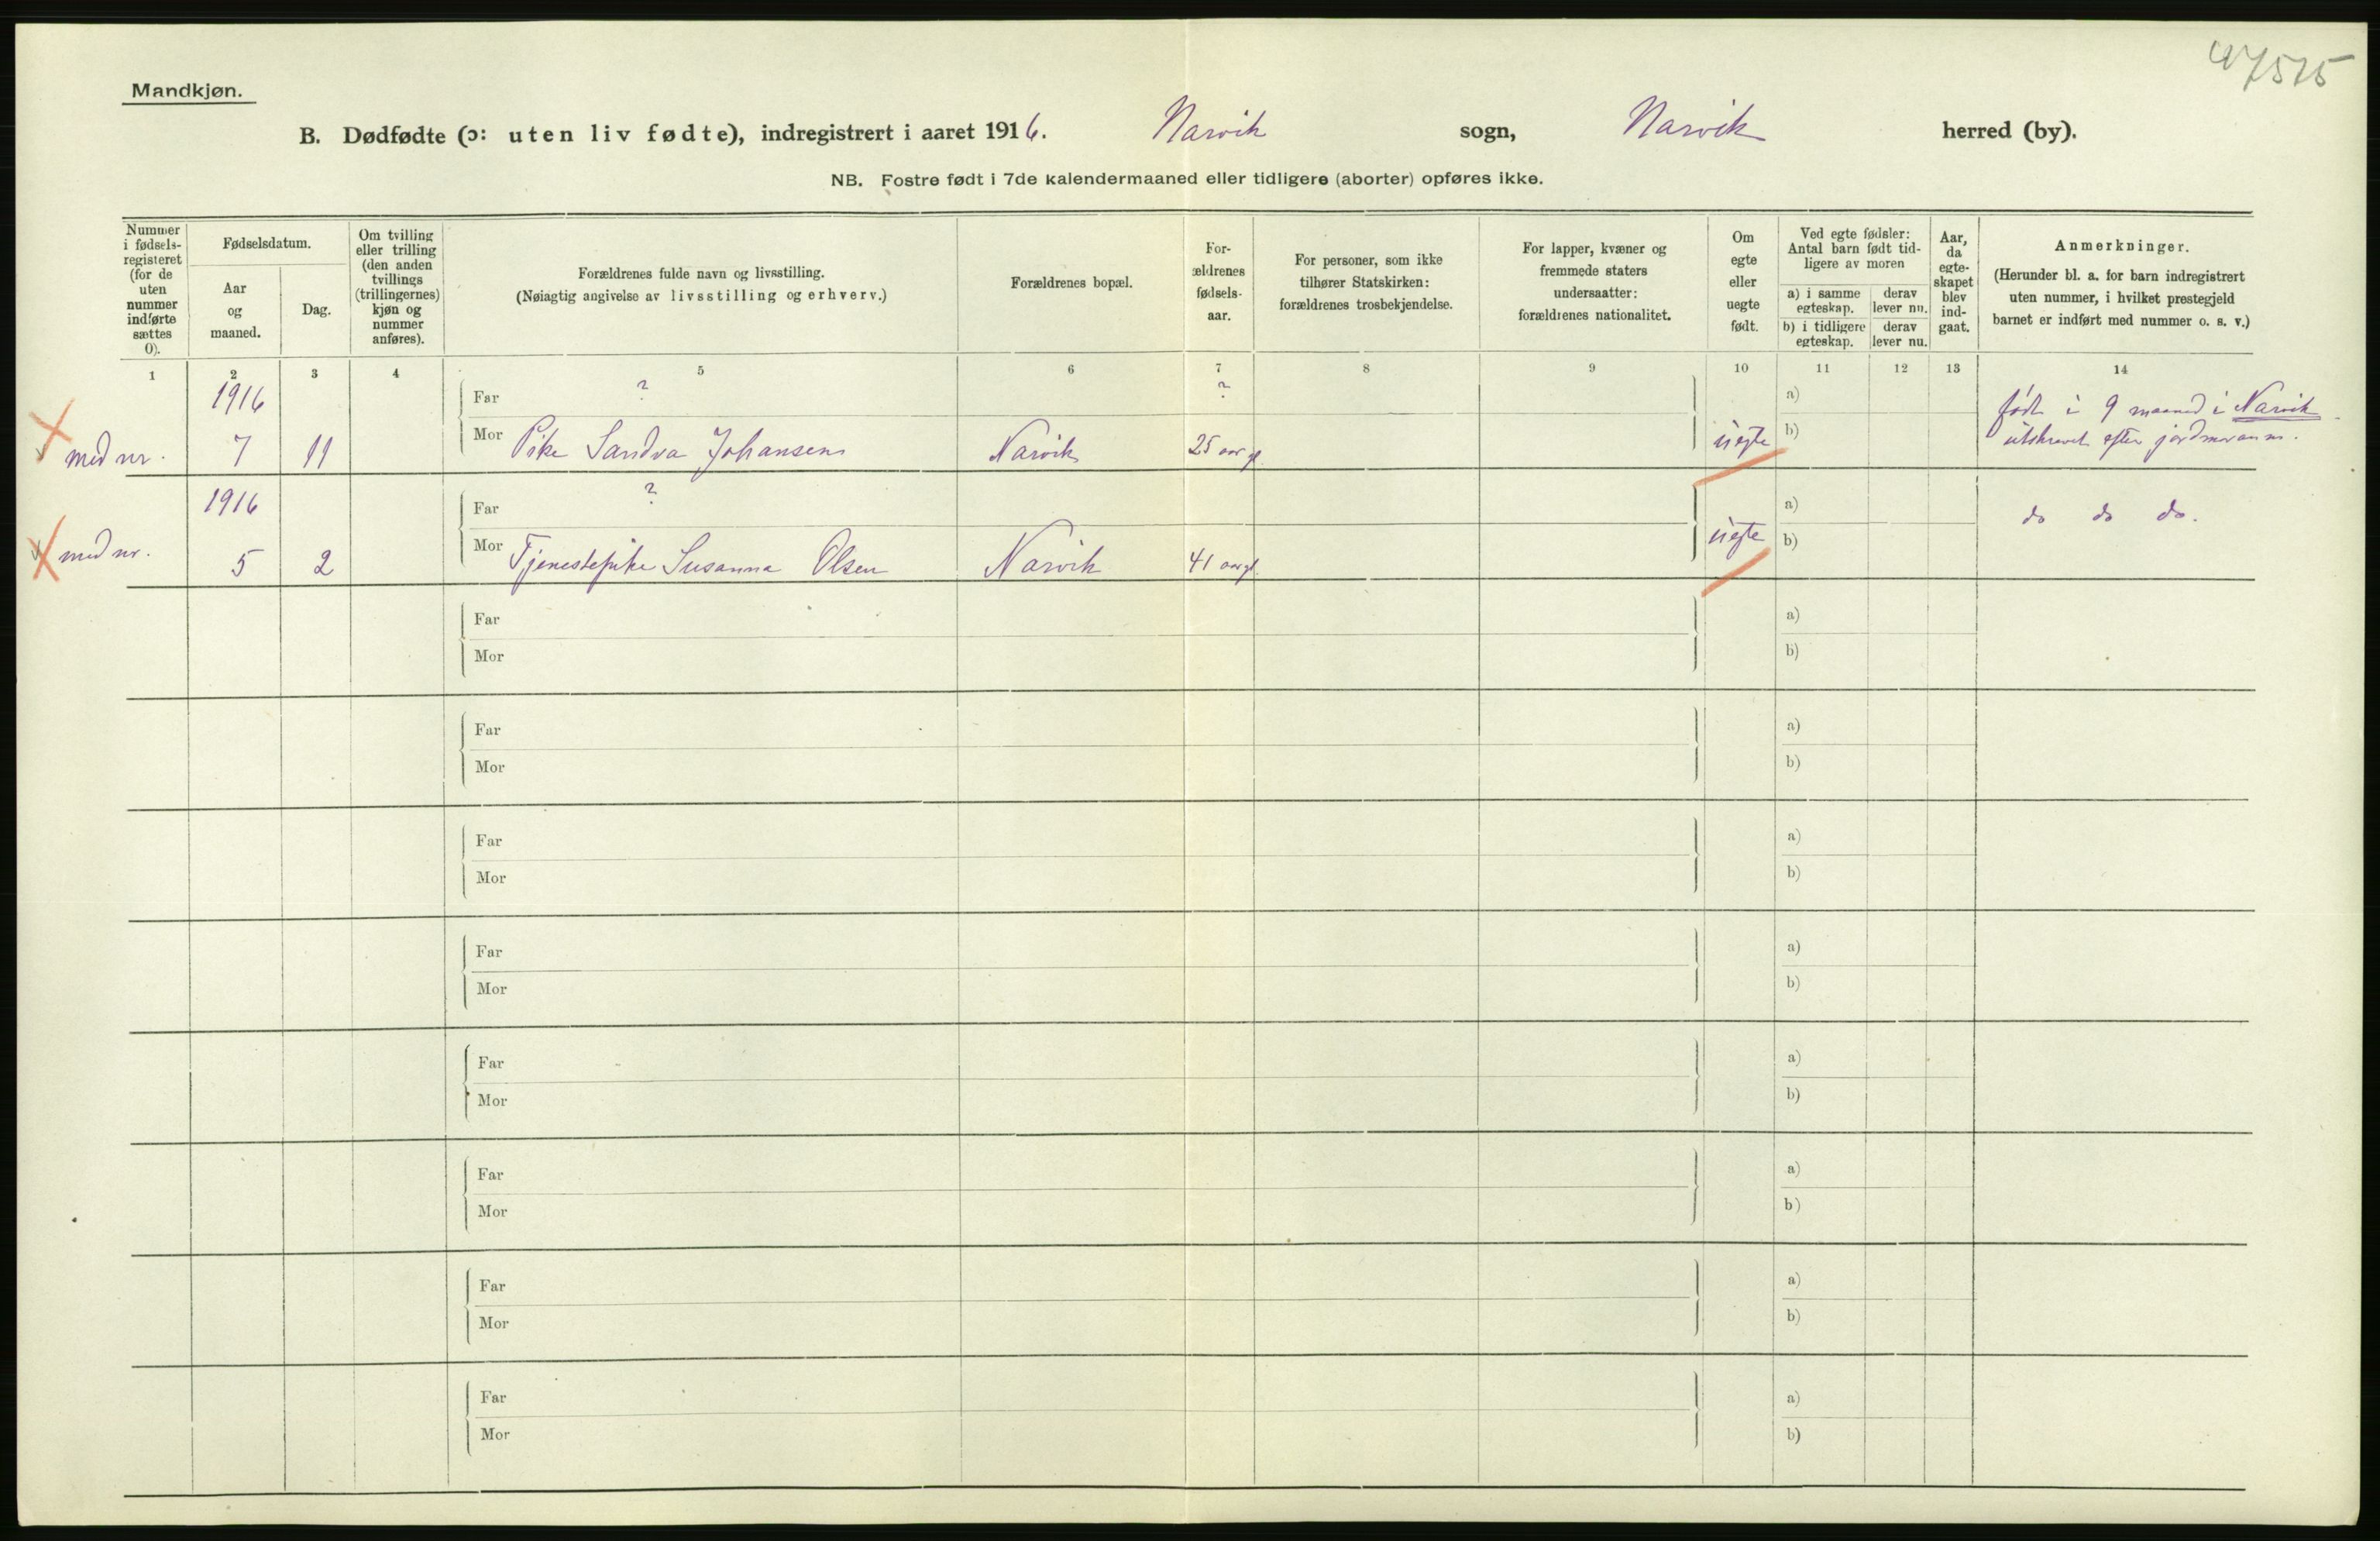 47515
Mandkjøn.
B. Dødfødte (ɔ: uten liv fødte), indregistrert i aaret 1916. Narvik sogn, Narvik herred (by).
NB. Fostre født i 7de kalendermaaned eller tidligere (aborter) opføres ikke.
Nummer
i fødsels-
registeret
(for de
uten
nummer
indførte
sættes
0).
Fødselsdatum.
Aar
og
maaned.
Dag.
Om tvilling
eller trilling
(den anden
tvillings
(trillingernes)
kjøn og
nummer
anføres).
Forældrenes fulde navn og livsstilling.
(Nøiagtig angivelse av livsstilling og erhverv.)
Forældrenes bopæl.
For-
ældrenes
fødsels-
aar.
For personer, som ikke
tilhører Statskirken:
forældrenes trosbekjendelse.
For lapper, kvæner og
fremmede staters
undersaatter:
forældrenes nationalitet.
Om
egte
eller
uegte
født.
Ved egte fødsler:
Antal barn født tid-
ligere av moren
a) i samme
egteskap.
derav
lever nu.
b) i tidligere
egteskap.
derav
lever nu.
Aar,
da
egte-
skapet
blev
ind-
gaat.
Anmerkninger.
(Herunder bl. a. for barn indregistrert
uten nummer, i hvilket prestegjeld
barnet er indført med nummer o. s. v.)
1 2 3 4 5 6 7 8 9 10 11 12 13 14
1916 Far ? ? a) født i 9 maaned i Narvik
med nr. 7 11 Mor Pike Sandva Johansen Narvik 25 aar gl. uegte b) utskrevet efter jordmoranm.
1916 Far ? a) do do do.
med nr. 5 2 Mor Tjenestepike Susanna Olsen Narvik 41 aar gl. uegte b)
Far a)
Mor b)
Far a)
Mor b)
Far a)
Mor b)
Far a)
Mor b)
Far a)
Mor b)
Far a)
Mor b)
Far a)
Mor b)
Far a)
Mor b)